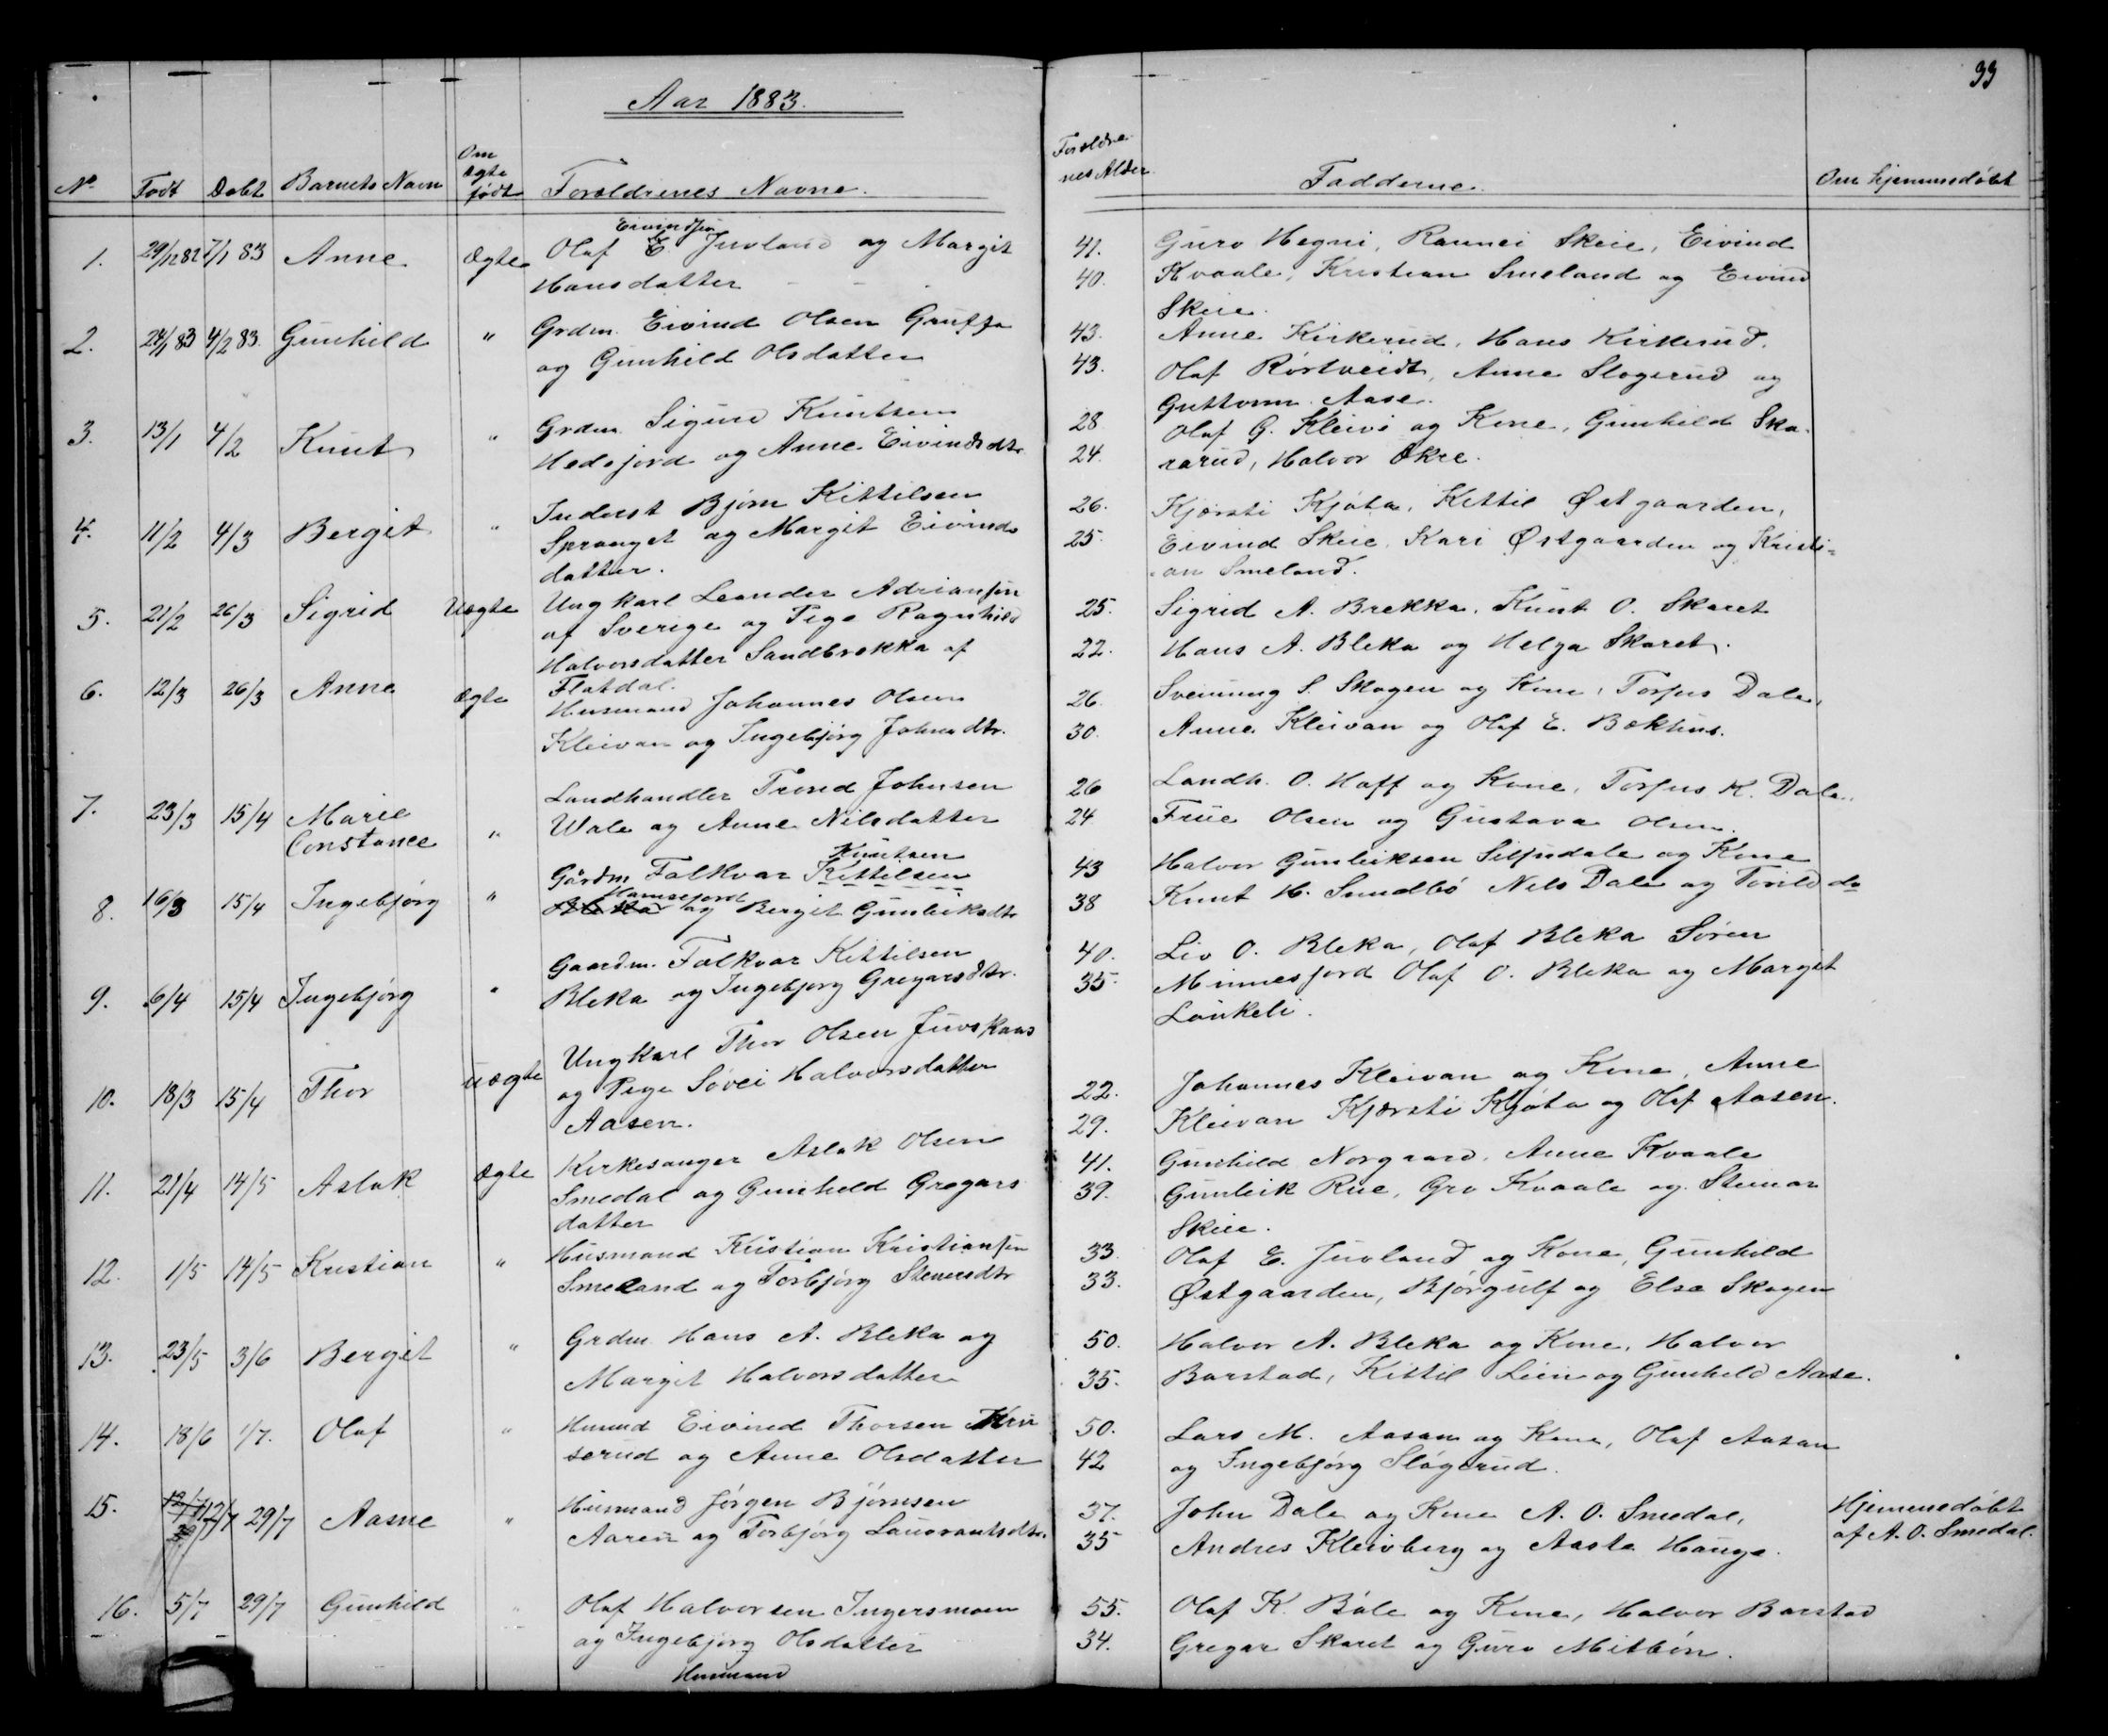 33
Aar 1883.
No Født Døbt Barnets Navn Om Ægte født Forældrenes Navne. Forældrenes Alder. Fadderne. Om hjemmedøbt
1. 29/12 82 7/1 83 Anne Ægte Olaf E. Eivindsen Juvland og Margit 41. Guro Hegni, Rannei Skeie, Eivind
Hansdatter 40. Kvaale, Kristian Smeland og Eivind
Skeie.
2. 24/1 83 4/2 83. Gunhild " Grdm. Eivind Olsen 43. Anne Kirkerud, Hans Kirkerud.
og Gunhild Olsdatter 43. Olaf Rørtveidt, Anne Slogerud og
Guttorm Aase.
3. 13/1 4/2 Knut " Grdm. Sigurd Knutsen 28 Olaf G. Kleivi og Kone, Gunhild Ska-
Hedejord og Anne Eivindsdtr. 24. rarud, Halvor Økre.
4. 11/2 4/3 Bergit " Inderst Bjørn Kittilsen 26. Kjersti Kjøta, Kittil Østgaarden,
Spranget og Margit Eivinds 25. Eivind Skeie, Kari Østgaarden og Kristi=
datter. an Smeland.
5. 21/2 26/3 Sigrid Uægte Ungkarl Leander Adriansen 25. Sigrid A. Brekka, Knut O. Skaret
af Sverige og Pige Ragnhild 22. Hans A. Bleka og Helga Skaret.
Halvorsdatter Sandbrekka af
Flatdal.
6. 12/3 26/3 Anne Ægte Husmand Johannes Olsen 26. Sveinung S. Skogen og Kone, Torjus Dale,
Kleivan og Ingebjørg Johnsdtr. 30. Anne Kleivan og Olaf E. Bekhus.
7. 23/3 15/4 Marie Landhandler Trond Johnsen 26 Landh. O. Hoff og Kone, Torjus K. Dale.
Constance " Wale og Anne Nilsdatter 24 Frue Olsen og Gustava Olsen.
8. 16/3 15/4 Ingebjørg " Gårdm. Falkvar Kittilsen Knutsen 43 Halvor Gunleiksen Siljudale og Kone
Bleka Mannsejord og Bergit Gunleiksdtr 38 Knut H. Sundbø Nils Dale og Torild do
9. 6/4 15/4 Ingebjørg " Gaardm. Falkvar Kittilsen 40. Liv O. Bleka, Olaf Bleka Søren
Bleka og Ingebjørg Gregarsdtr. 35. Minnesjord Olaf O. Bleka og Margit
Lønkeli.
10. 18/3 15/4 Thor uægte Ungkarl Thor Olsen Juvskaas 22. Johannes Kleivan og Kone, Anne
og Pige Søvei Halvorsdatter 29. Kleivan Kjersti Kjøta og Olaf Aasen.
Aasen.
11. 21/4 14/5 Aslak Ægte Kirkesanger Aslak Olsen 41. Gunhild Norgaard, Anne Kvaale
Smedal og Gunhild Gregars 39. Gunleik Rue, Gro Kvaale og Steinar
datter Skeie.
12. 1/5 14/5 Kristian " Husmand Kristian Kristiansen 33. Olaf E. Juvland og Kone, Gunhild
Smeland og Torbjørg Steinersdtr 33. Østgaarden, Bjørgulf og Else Skogen
13. 23/5 3/6 Bergit " Grdm. Hans A. Bleka og 50. Halvor A. Bleka og Kone, Halvor
Margit Halvorsdatter 35. Barstad, Kittil Lien og Gunhild Aase.
14. 18/6 1/7. Olaf " Husmd Eivind Thorsen 50. Lars M. Aasan og Kone, Olaf Aasan
serud og Anne Olsdatter 42 og Ingebjørg Slogerud.
15. 12/7 29/7 Aasne " Husmand Jørgen Bjørnsen 37. John Dale og Kone A. O. Smedal, Hjemmedøbt
Aaren og Torbjørg Lauvrantsdtr. 35 Andres Kleivberg og Aaste Hauge. af A. O. Smedal.
16. 5/7 29/7 Gunhild " Olaf Halvorsen Ingersmoen 55. Olaf K. Bøle og Kone, Halvor Barstad
og Ingebjørg Olsdatter 34. Gregar Skaret og Guro Mitbøn.
Husmand